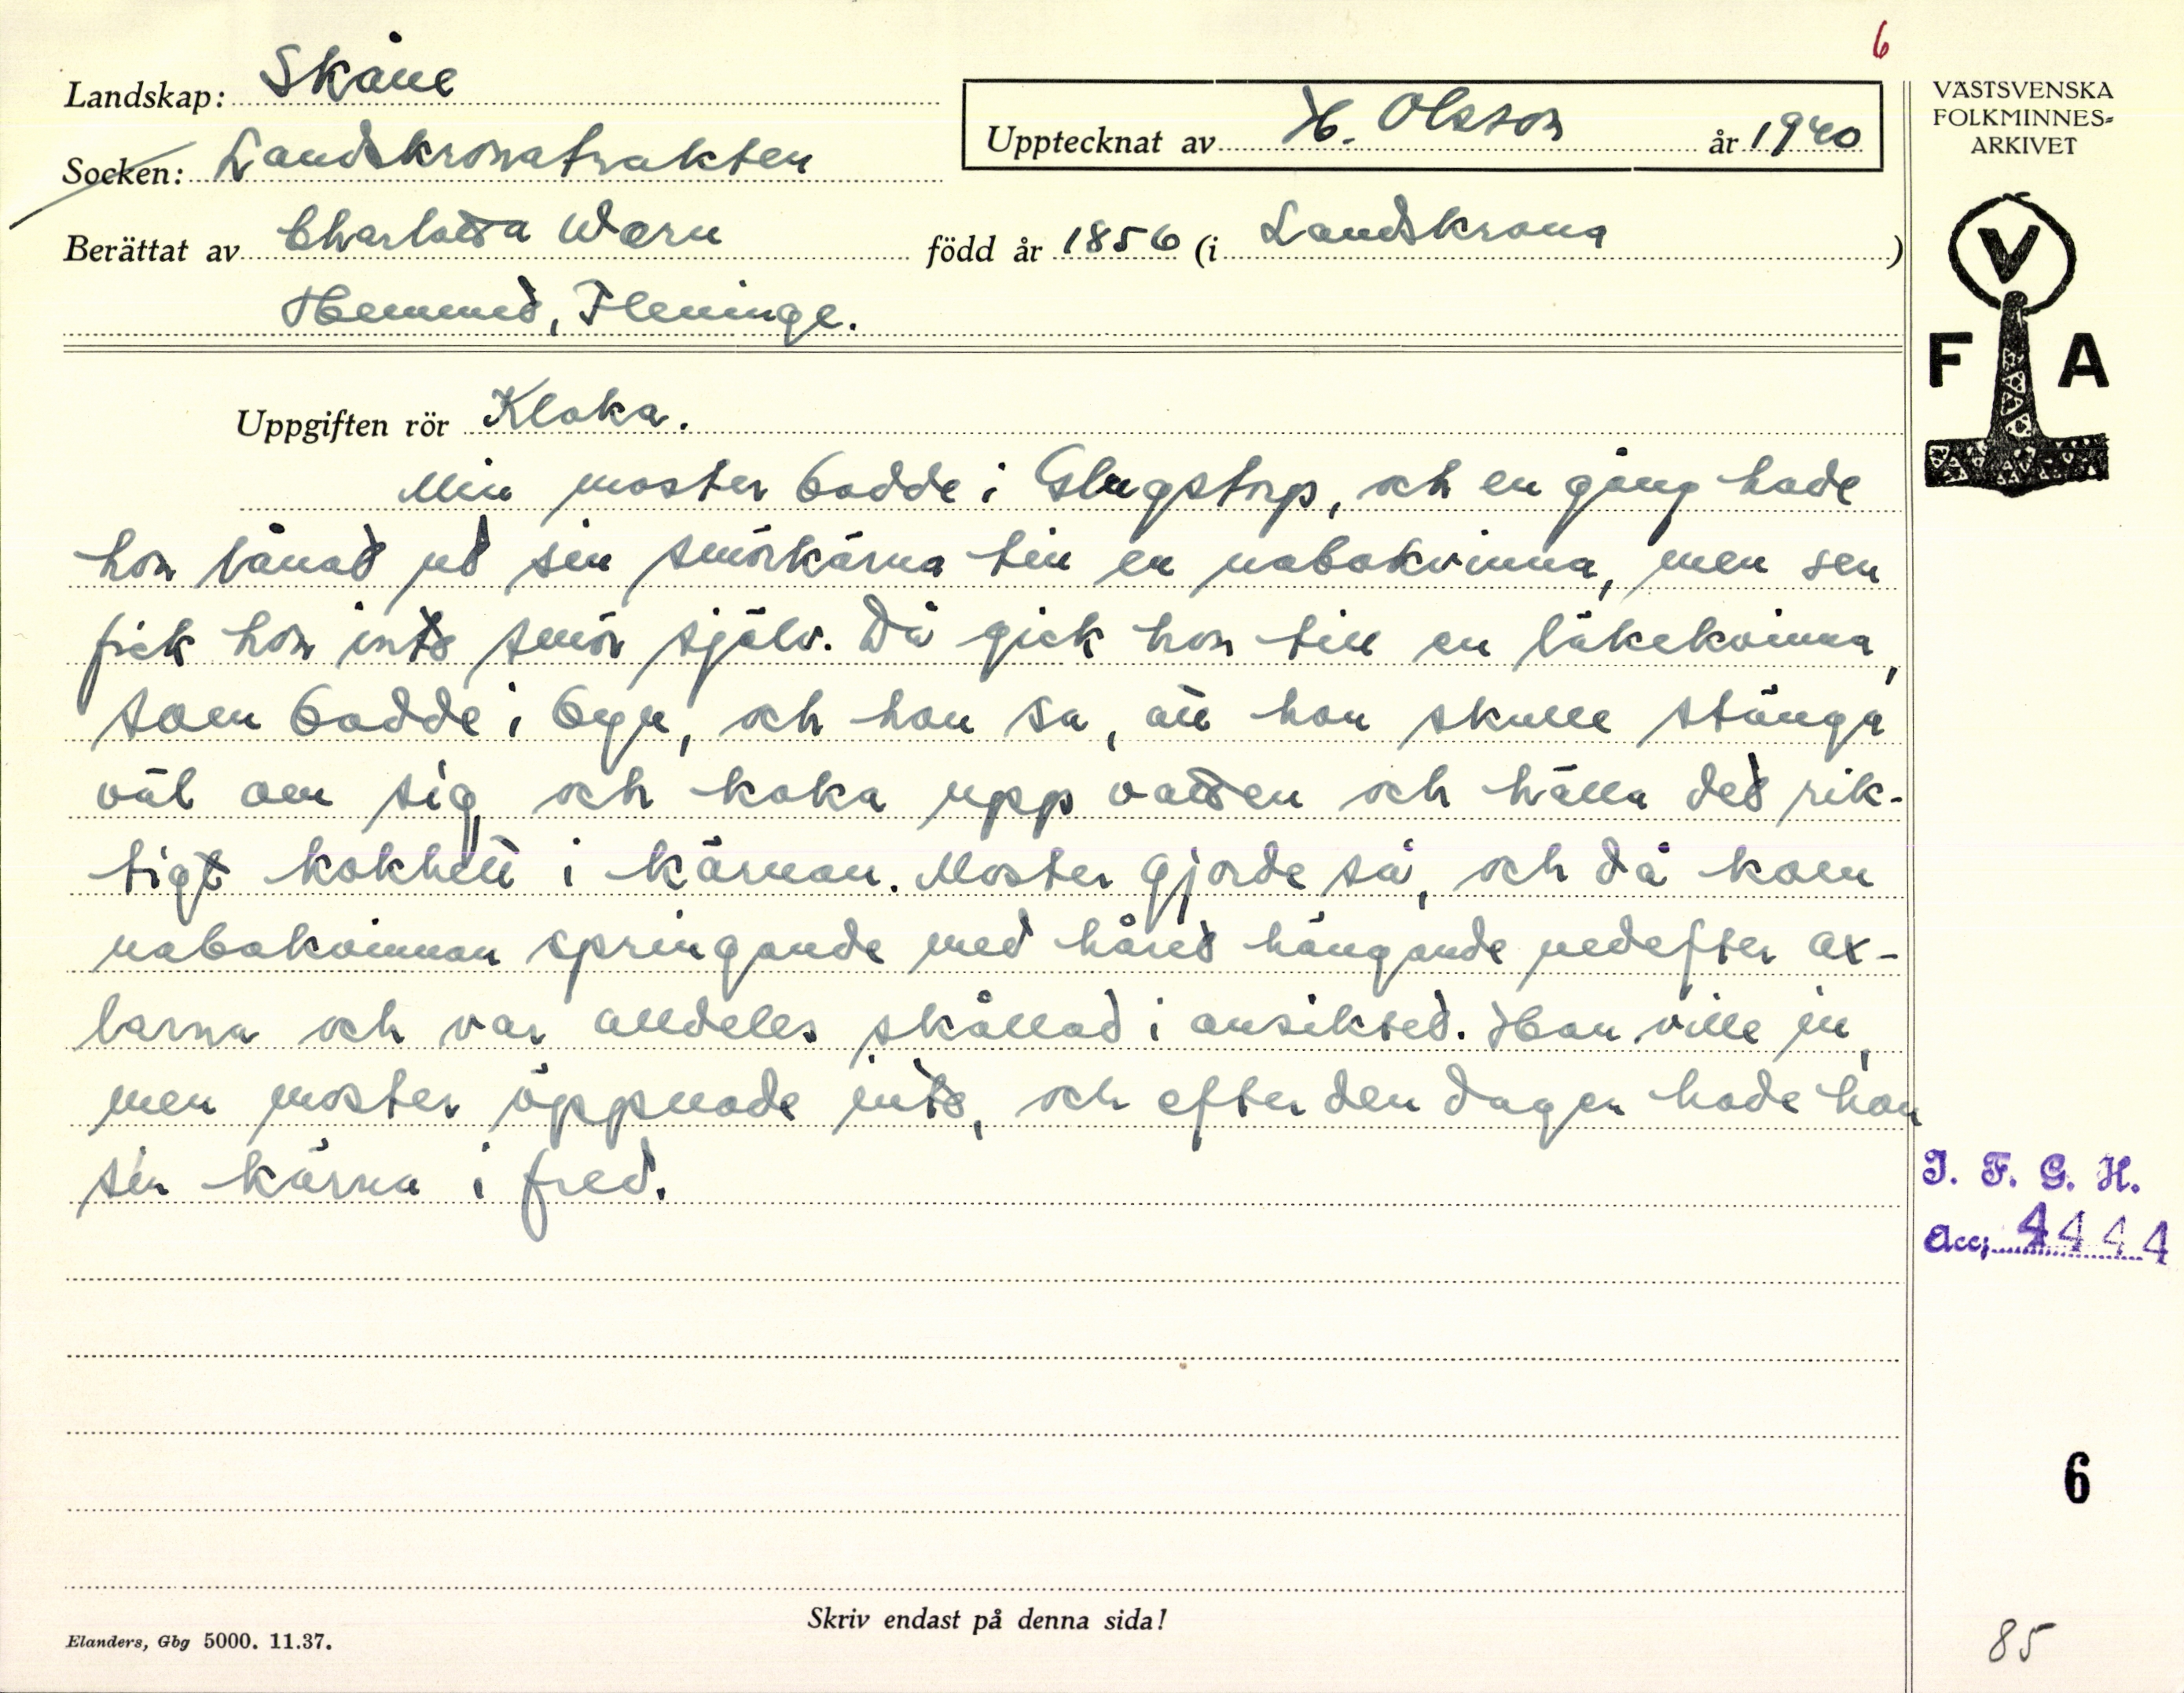 6
Landskap: Skåne
Socken: Landskronatrakten
Upptecknat av H. Olsson år 1940
Berättat av Charlotta Wærn född år 1856 (i Landskrona)
Hemmet, Fleninge.
VÄSTSVENSKA
FOLKMINNES-
ARKIVET
V
F A
Uppgiften rör Kloka.
Min moster bodde i Glugstorp, och en gång hade
hon lånat ut sin smörkärna till en nabokvinna, men sen
fick hon inte smör själv. Då gick hon till en läkekvinna,
som bodde i byn, och hon sa, att hon skulle stänga
väl om sig, och koka upp vatten och hälla det rik-
tigt kokhett i kärnan. Moster gjorde så, och då kom
nabokvinnan springande med håret hängande nedefter ax-
larna och var alldeles skållad i ansiktet. Hon ville in,
men moster öppnade inte, och efter den dagen hade hon
sin kärna i fred.
I. F. G. H.
Acc; 4444
6
Skriv endast på denna sida!
Elanders, Gbg 5000. 11.37.
85